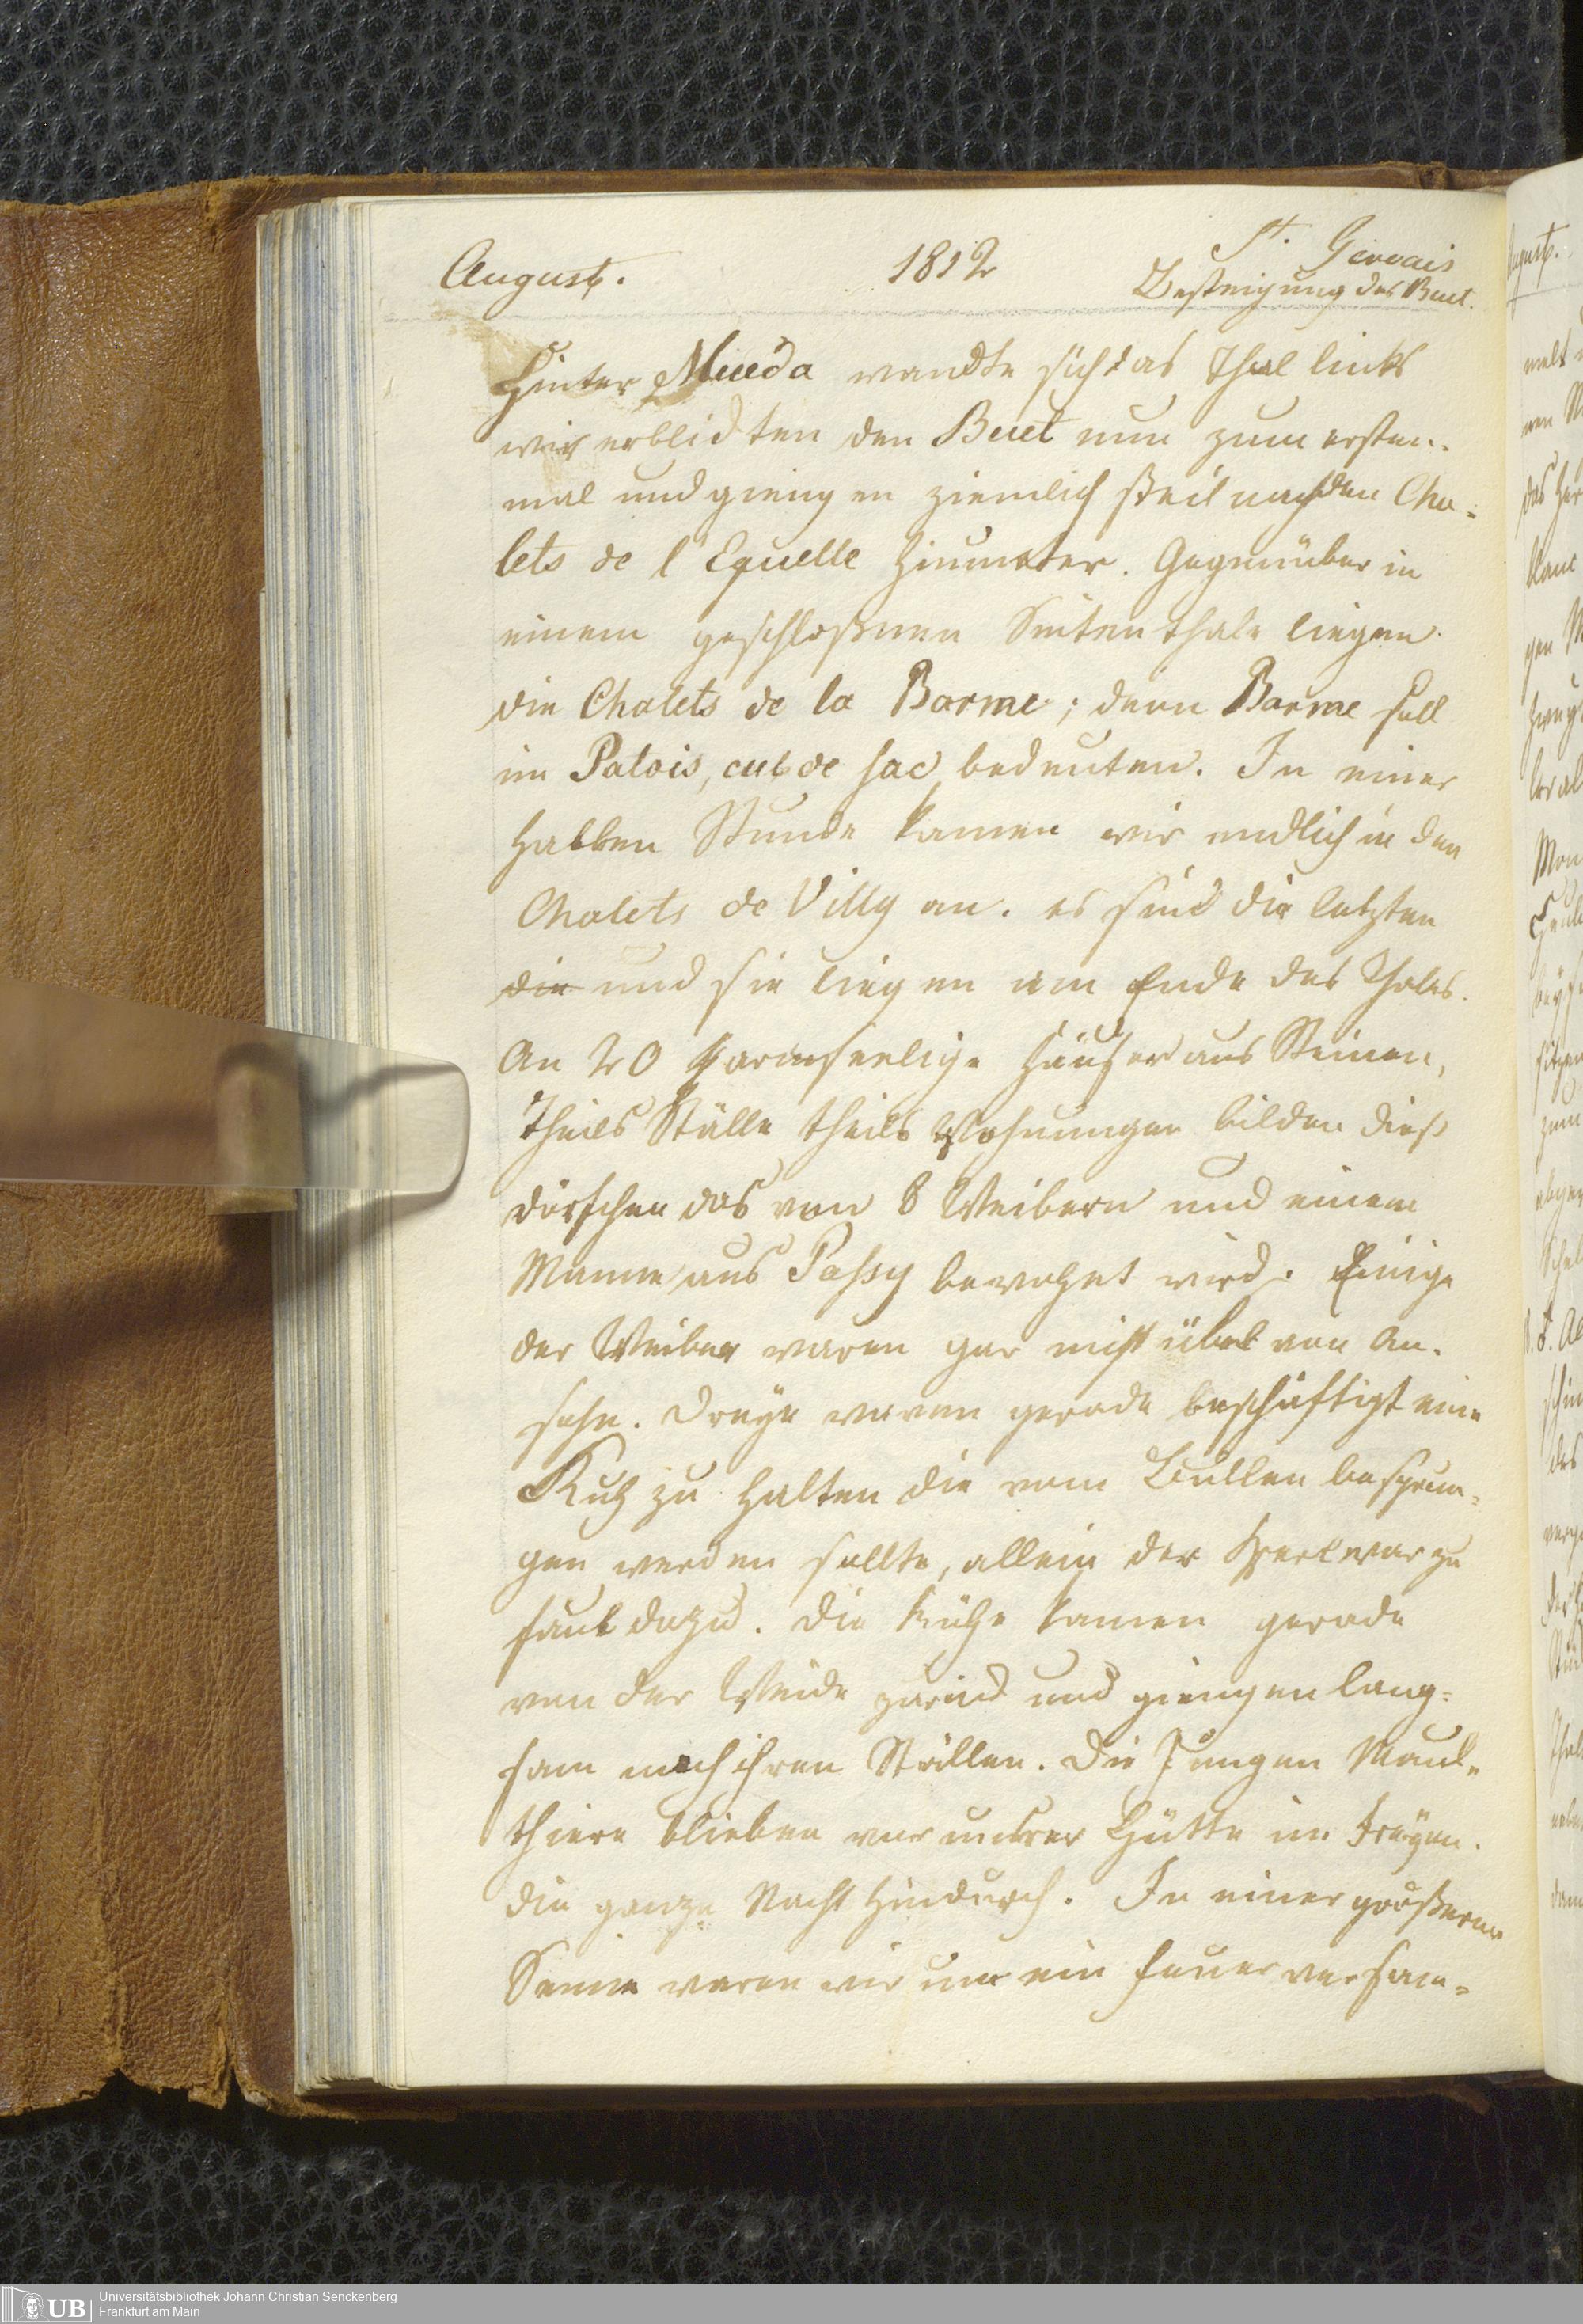 August. 1812 St. Gervais
Besteigung des Buet.
Hinter Mueda wandte sich das Thal links
wir erblickten den Buet nun zum ersten-
mal und giengen ziemlich steil nach den Cha-
lets de l'Equelle hinunter. Gegenüber in
einem geschloßenen Seitenthale liegen
die Chalets de la Barme; denn Barme soll
im Patois, cul de sac bedeuten. In einer
halben Stunde kamen wir endlich in den
Chalets de Villy an. es sind die letzten
die und sie liegen am Ende des Thales.
An 20 armseelige Häuser aus Steinen,
Theils Ställe theils Wohnungen bilden dieß
Dörfchen das von 8 Weibern und einem
Manne aus Passy bewohnt wird. Einige
der Weiber waren gar nicht übel von An-
sehn. Dreye waren gerade beschäftigt eine
Kuh zu halten die vom Bullen besprun-
gen werden sollte, allein der Kerl war zu
faul dazu. Die Kühe kamen gerade
von der Weide zurück und giengen lang-
sam nach ihren Ställen. Die Jungen Maul-
thiere blieben vor unsrer Hütte im Freyen.
die ganze Nacht hindurch. In einer größeren
Senne waren wir um ein Feuer versam-
Universitätsbibliothek Johann Christian Senckenberg
UB Frankfurt am Main